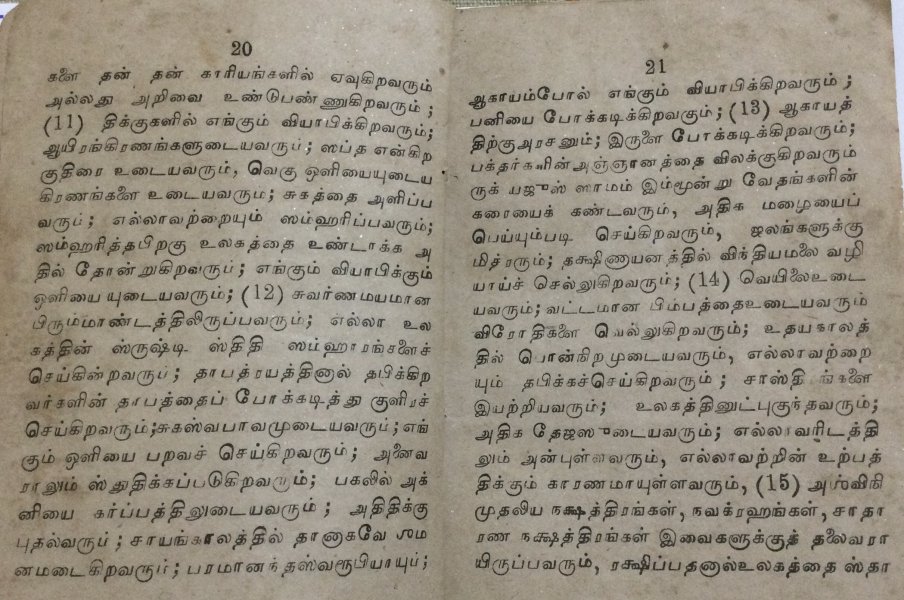 20
களை தன் தன் காரியங்களில் ஏவுகிறவரும்
அல்லது அறிவை உண்டுபண்ணுகிறவரும் ;
(11) திக்குகளில் எங்கும் வியாபிக்கிறவரும்;
ஆயிரங்கிரணங்களுடையவரும்; ஸப்த என்கிற
குதிரை உடையவரும், வெகு ஒளியையுடைய
கிரணங்களை உடையவரும்; சுகத்தை அளிப்ப
வரும்; எல்லாவற்றையும் ஸம்ஹரிப்பவரும்;
ஸம்ஹரித்தபிறகு உலகத்தை உண்டாக்க அ
தில் தோன்றுகிறவரும்; எங்கும் வியாபிக்கும்
ஒளியையுடையவரும்; (12) சுவர்ணமயமான
பிரும்மாண்டத்திலிருப்பவரும்; எல்லா உல
கத்தின் ஸ்ருஷ்டி ஸ்திதி ஸம்ஹாரங்களைச்
செய்கின்றவரும்; தாபத்ரயத்தினால் தபிக்கிற
வர்களின் தாபத்தைப் போக்கடித்து குளிரச்
செய்கிறவரும்;சுகஸ்வபாவமுடையவரும்; எங்
கும் ஒளியை பறவச் செய்கிறவரும்; அனைவ
ராலும் ஸ்துதிக்கப்படுகிறவரும்; பகலில் அக்
னியை கர்ப்பத்திலுடையவரும்; அதிதிக்கு
புதல்வரும்; சாயங்காலத்தில் தானாகவே ஶம
னமடைகிறவரும்; பரமானந்தஸ்வரூபியாயும்;
21
ஆகாயம்போல் எங்கும் வியாபிக்கிறவரும் ;
பனியை போக்கடிக்கிறவகும்; (13) ஆகாயத்
திற்குஅரசனும்; இருளை போக்கடிக்கிறவரும்;
பக்தர்களின்அஞ்ஞானத்தை விலக்குகிறவரும்
ருக் யஜுஸ் ஸாமம் இம்மூன்று வேதங்களின்
கரையைக் கண்டவரும், அதிக மழையைப்
பெய்யும்படி செய்கிறவரும், ஜலங்களுக்கு
மித்ரரும்; தக்ஷிணாயனத்தில் விந்தியமலை வழி
யாய்ச் செல்லுகிறவரும்; (14) வெயிலைஉடை
யவரும்; வட்டமான பிம்பத்தைஉடையவரும்
விரோதிகளை வெல்லுகிறவரும்; உதயகாலத்
தில் பொன்நிறமுடையவரும், எல்லாவற்றை
யும் தபிக்கச்செய்கிறவரும் ; சாஸ்திரங்களை
இயற்றியவரும்; உலகத்தினுட்புகுந்தவரும்;
அதிக தேஜஸுடையவரும்; எல்லாவரிடத்தி
லும் அன்புள்ளவரும், எல்லாவற்றின் உற்பத்
திக்கும் காரணமாயுள்ளவரும், (15) அஶ்விநி
முதலிய நக்ஷத்திரங்கள், நவக்ரஹங்கள், சாதா
ரண நக்ஷத்திரங்கள் இவைகளுக்குத் தலைவரா
யிருப்பவரும், ரக்ஷிப்பதனால்உலகத்தை ஸ்தா